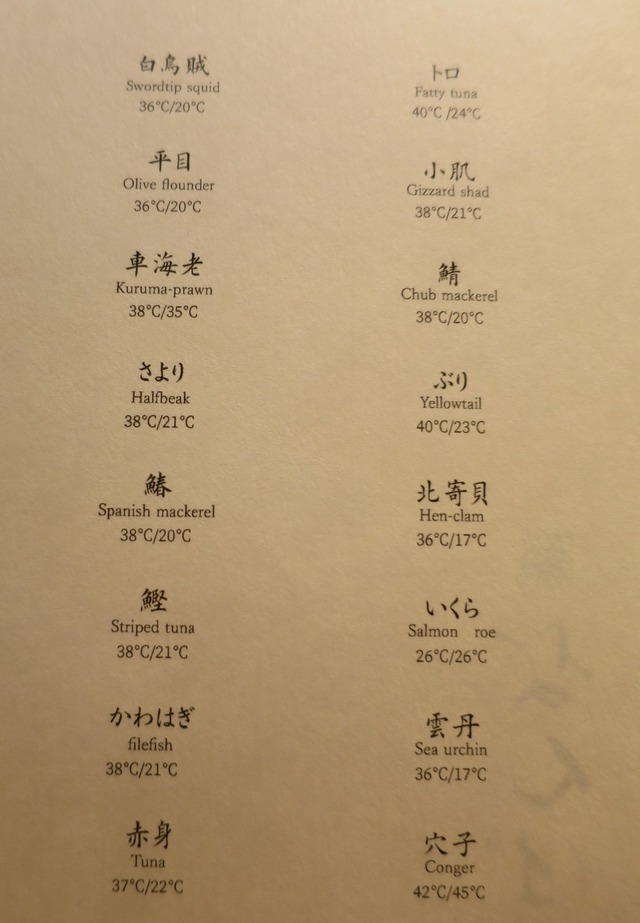 白烏賊
Swordtip squid
36°C/20°C
平目
Olive flounder
36°C/20°C
車海老
Kuruma-prawn
38°C/35°C
さより
Halfbeak
38°C/21°C
鰆
Spanish mackerel
38°C/20°C
鰹
Striped tuna
38°C/21°C
かわはぎ
filefish
38°C/21°C
赤身
Tuna
37°C/22°C
トロ
Fatty tuna
40°C /24°C
小肌
Gizzard shad
38°C/21°C
鯖
Chub mackerel
38°C/20°C
ぶり
Yellowtail
40°C/23°C
北寄貝
Hen-clam
36°C/17°C
いくら
Salmon roe
26°C/26°C
雲丹
Sea urchin
36°C/17°C
穴子
Conger
42°C/45°C